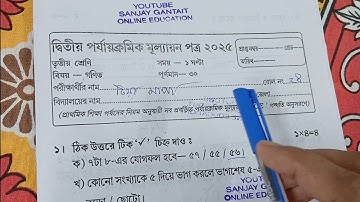 YOUTUBE
SANJAY GANTAIT
ONLINE EDUCATION
দ্বিতীয় পর্যায়ক্রমিক মূল্যায়ন পত্র ২০২৫
তৃতীয় শ্রেণি সময় — ১ ঘণ্টা
বিষয় — গণিত পূর্ণমান — ৩০
পরীক্ষার্থীর নাম রোল নং
বিদ্যালয়ের নাম
(প্রাথমিক শিক্ষা পর্ষদের নিয়ম অনুযায়ী নব প্রবর্তিত পর্যায়ক্রমিক মূল্যায়ন পদ্ধতি অনুসরণে)
১। ঠিক উত্তরে টিক '✓' চিহ্ন দাও : ১×৪=৪
ক) ৭টা ৮-এর যোগফল হবে— ৫৭ / ৫৫ / ৫৬।
খ) কোনো সংখ্যাকে ৫ দিয়ে ভাগ করলে ভাগশেষ ৫-
YOUTUBE
SANJAY GANTAIT